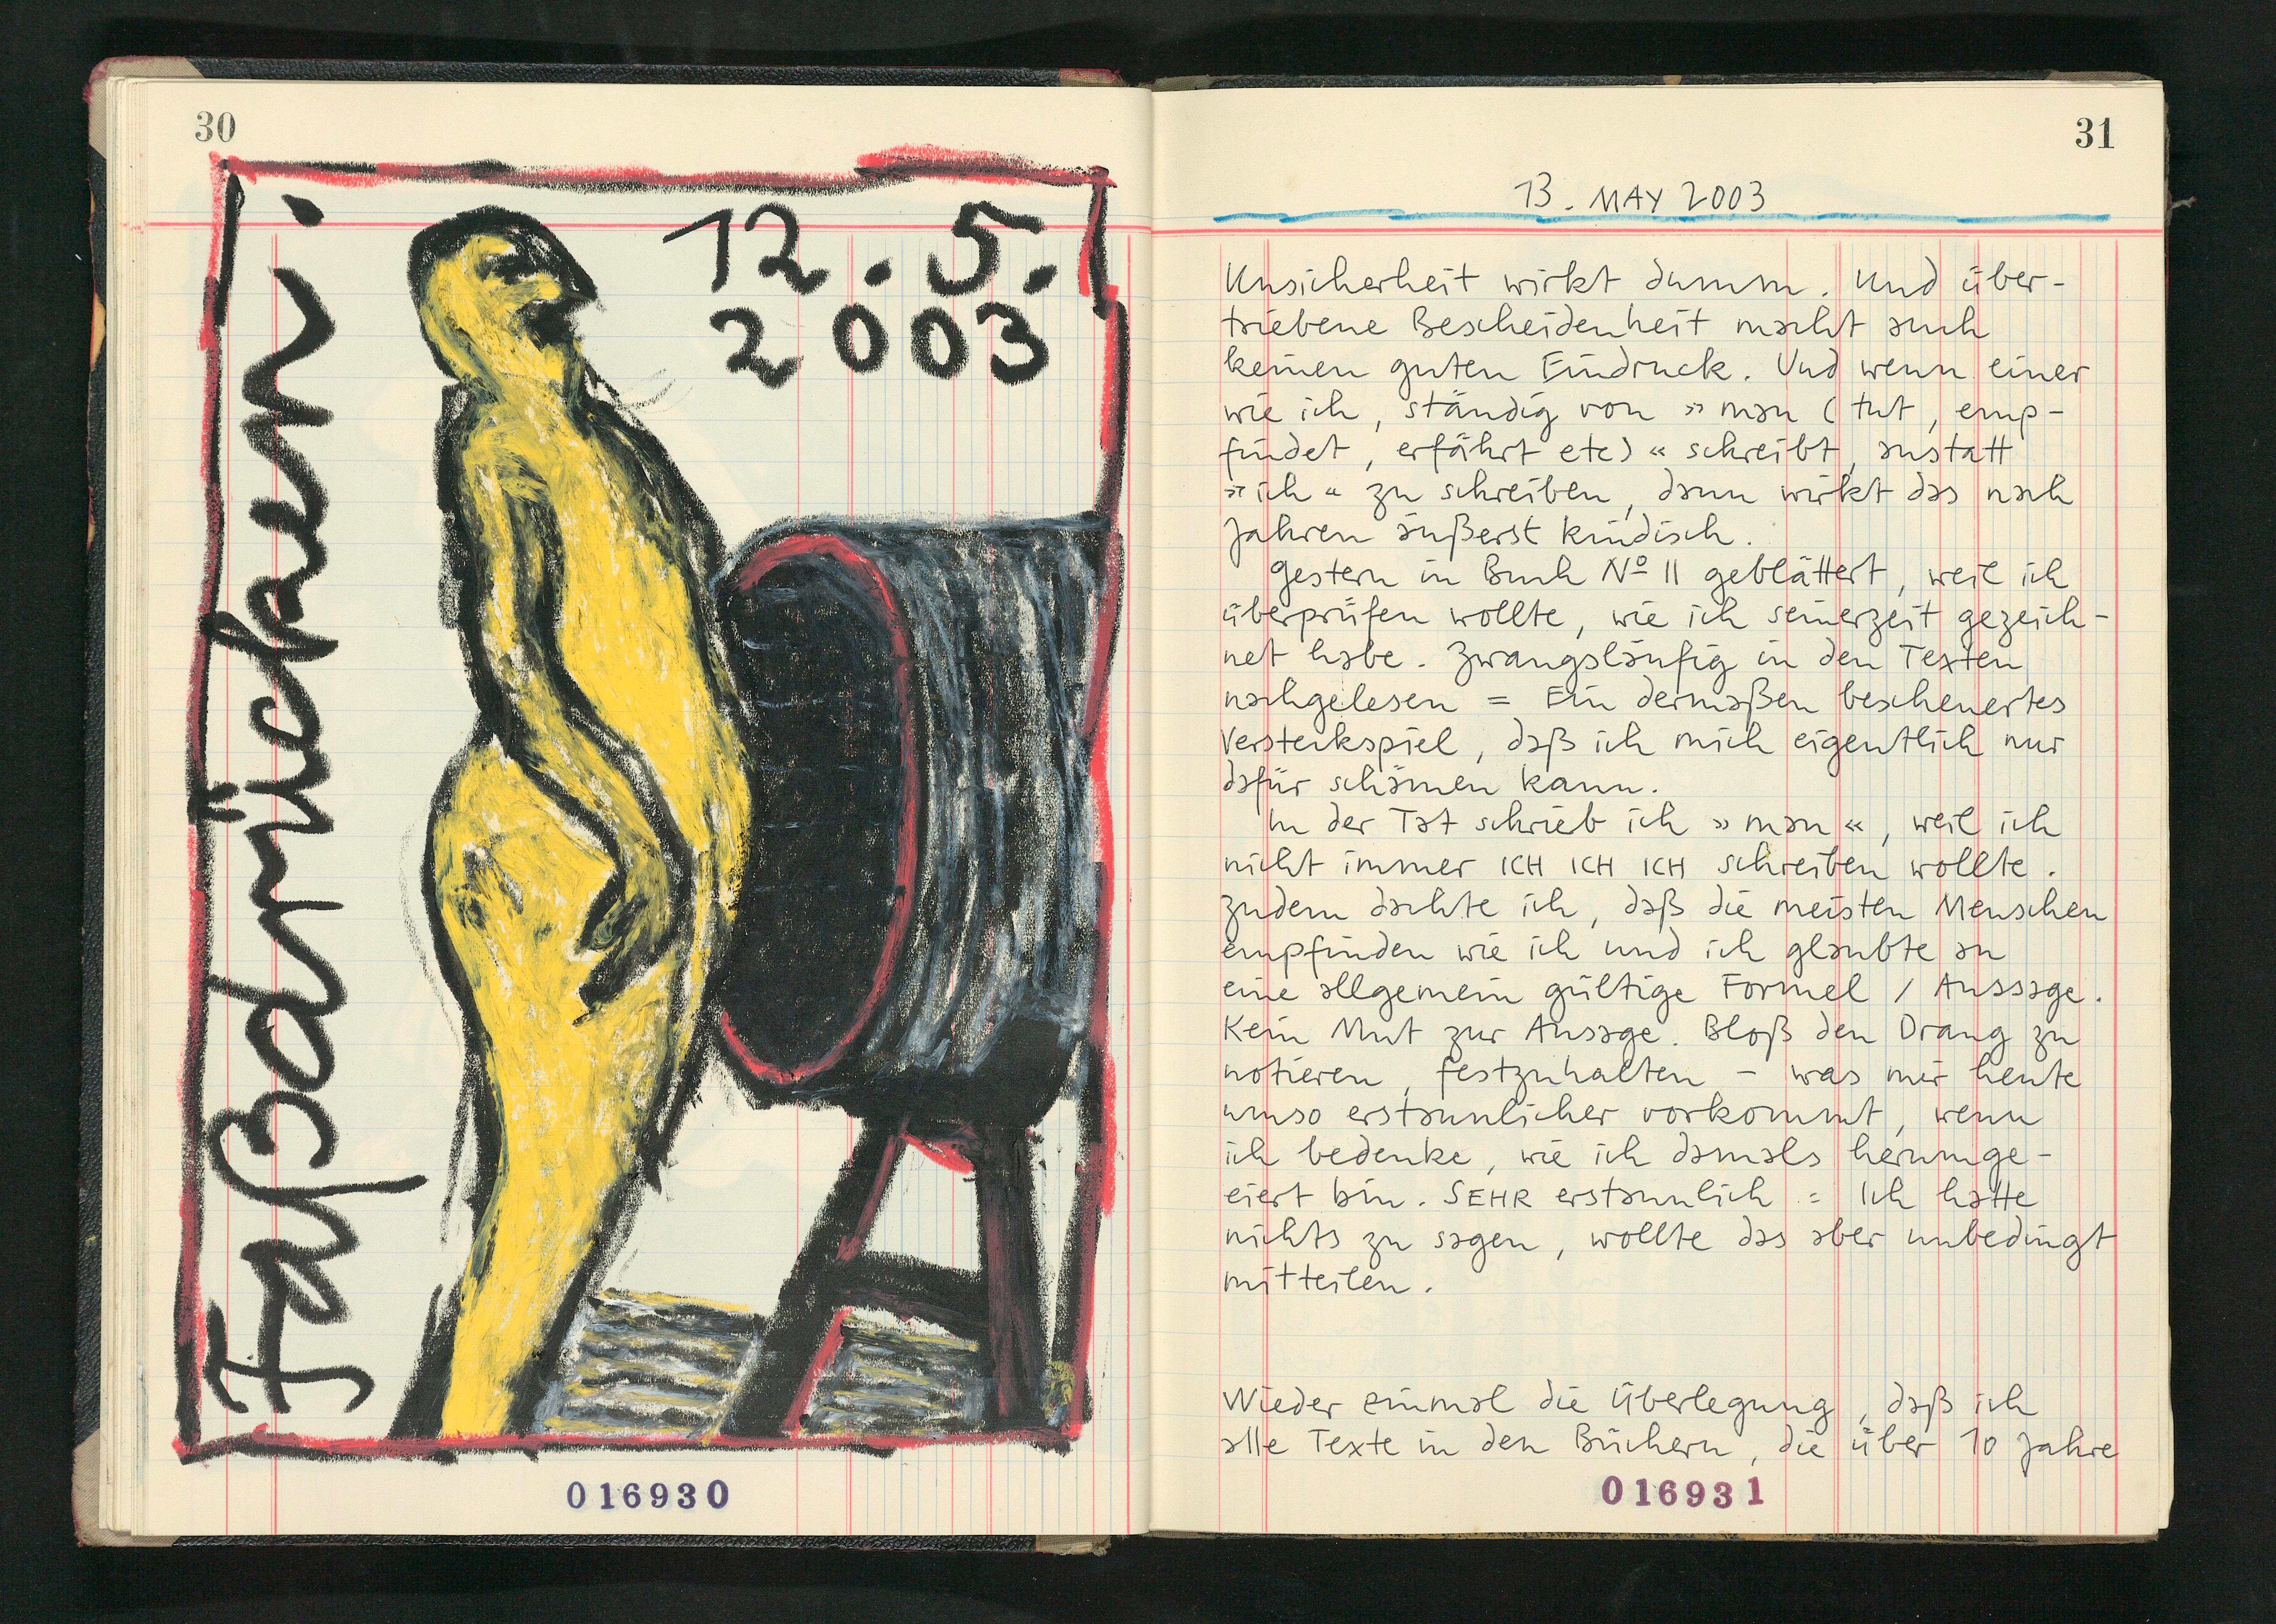 30
Faßdrücken.
12.5.
2003
016930
31
13. MAY 2003
Unsicherheit wirkt dumm. Und über-
triebene Bescheidenheit macht auch
keinen guten Eindruck. Und wenn einer
wie ich, ständig von »man (tut, emp-
findet, erfährt etc)« schreibt, anstatt
»ich« zu schreiben, dann wirkt das nach
Jahren äußerst kindisch.
Gestern in Buch Nº 11 geblättert, weil ich
überprüfen wollte, wie ich seinerzeit gezeich-
net habe. Zwangsläufig in den Texten
nachgelesen = Ein dermaßen bescheuertes
Versteckspiel, daß ich mich eigentlich nur
dafür schämen kann.
In der Tat schrieb ich »man«, weil ich
nicht immer ICH ICH ICH schreiben wollte.
Zudem dachte ich, daß die meisten Menschen
empfinden wie ich und ich glaubte an
eine allgemein gültige Formel / Aussage.
Kein Mut zur Aussage. Bloß den Drang zu
notieren, festzuhalten - was mir heute
umso erstaunlicher vorkommt, wenn
ich bedenke, wie ich damals herumge-
eiert bin. SEHR erstaunlich = Ich hatte
nichts zu sagen, wollte das aber unbedingt
mitteilen.
Wieder einmal die Überlegung, daß ich
alle Texte in den Büchern, die über 10 Jahre
016931